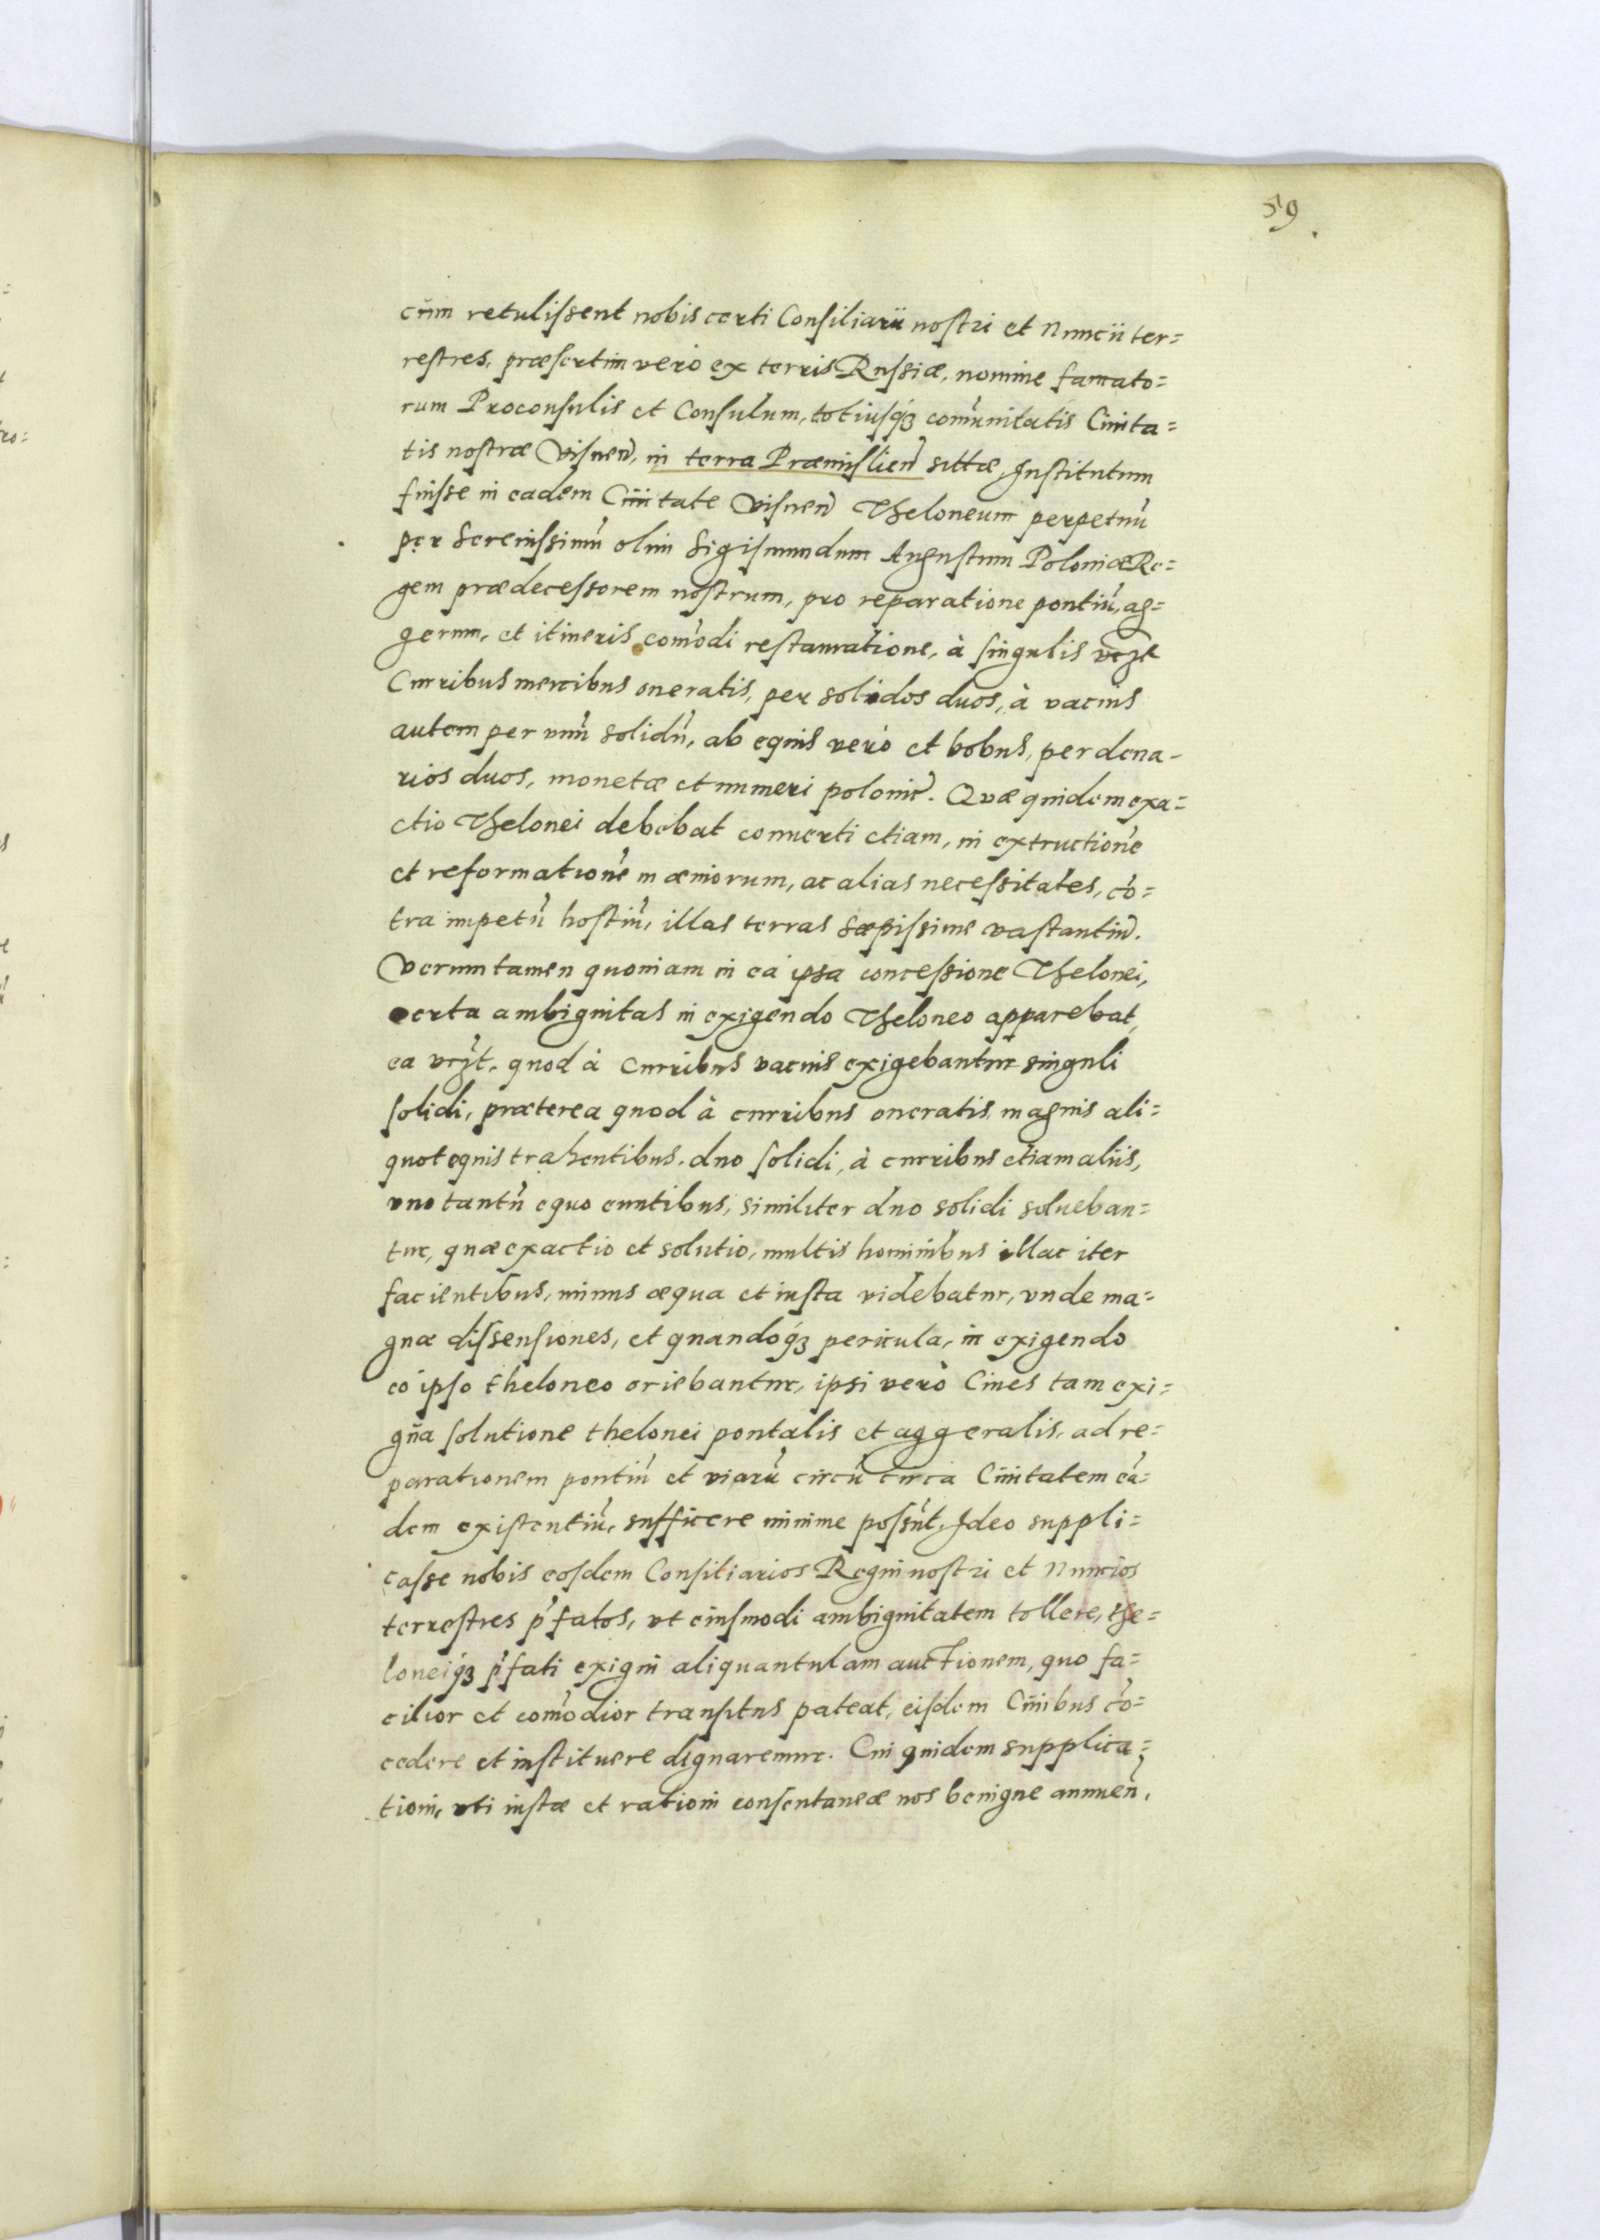 59.
cum retulissent nobis certi Consiliarii nostri et Nuncii ter=
restres, præsertim verò ex terris Russiæ, nomine famato=
rum Proconsulis et Consulum, totiusq́ꝫ com̃unitatis Ciuita=
tis nostræ Visneñ, in terra Præmislień sittæ, Institutum
fuisse in eadem Ciuitate Visneñ Theloneum perpetuũ
per Serenissimũ olim Sigismundum Augustum Poloniæ Re=
gem prædecessorem nostrum, pro reparatione pontiũ, ag=
gerum, et itineris com̃odi restauratione, à singulis
Curribus mercibus oneratis, per solidos duos, à vacuis
autem per vnũ solidũ, ab equis verò et bobus, per dena-
rios duos, monetæ et numeri polonic̃. Quæ quidem exa=
ctio Thelonei debebat conuerti etiam, in extructionẽ
et reformationẽ mæniorum, ac alias necessitates, cõ=
tra impetũ hostiũ, illas terras sæpissime vastantiũ.
Verumtamen quoniam in eà ipsa concessione Thelonei,
certa ambiguitas in exigendo Theloneo apparebat,
ea vc̃zt, quod à curribus vacuis exigebantur singuli
solidi, præterea quod à curribus oneratis, magnis ali=
quot equis trahentibus, duo solidi, à curribus etiam aliis,
vno tantũ equo euntibus, similiter duo solidi solueban=
tur, quæ exactio et solutio, multis hominibus illac iter
facientibus, minus æqua et iusta videbatur, vnde ma=
gnæ dissensiones, et quandoq́ꝫ pericula, in exigendo
eò ipso theloneo oriebantur, ipsi verò Ciues tam exi=
gũa solutione thelonei pontalis et aggeralis, ad re=
parationem pontiũ et viarũ circũ circa Ciuitatem eã=
dem existentiũ, sufficere minime possũt, Ideo suppli=
casse nobis eosdem Consiliarios Regni nostri et Nuncios
terrestres p̃fatos, vt eiusmodi ambiguitatem tollere, the=
loneiq́ꝫ p̃fati exigui aliquantulam auctionem, quo fa=
cilior et com̃odior transitus pateat, eisdem Ciuibus cõ=
cedere et instituere dignaremur. Cui quidem supplica=
tioni, vti iustæ et rationi consentaneæ nos benigne annueñ,